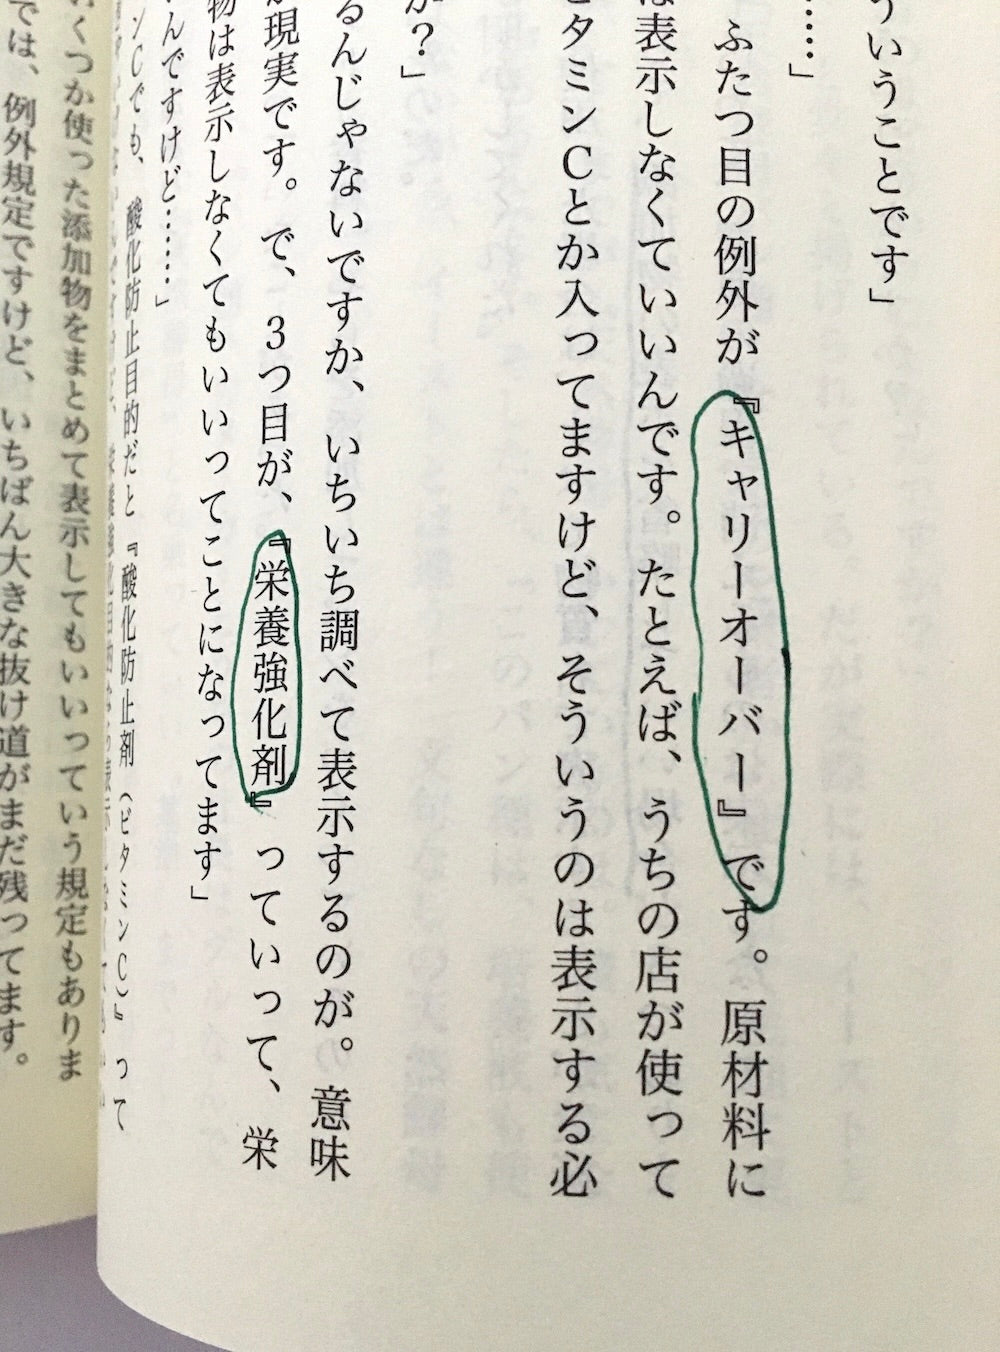 ういうことです」
……」
ふたつ目の例外が『キャリーオーバー』です。原材料に
は表示しなくていいんです。たとえば、うちの店が使って
ビタミンCとか入ってますけど、そういうのは表示する必
か？」
るんじゃないですか、いちいち調べて表示するのが。意味
が現実です。で、3つ目が、『栄養強化剤』っていって、栄
物は表示しなくてもいいってことになってます」
んですけど……」
ンCでも、酸化防止目的だと『酸化防止剤（ビタミンC）』って
いくつか使った添加物をまとめて表示してもいいっていう規定もありま
では、例外規定ですけど、いちばん大きな抜け道がまだ残ってます。